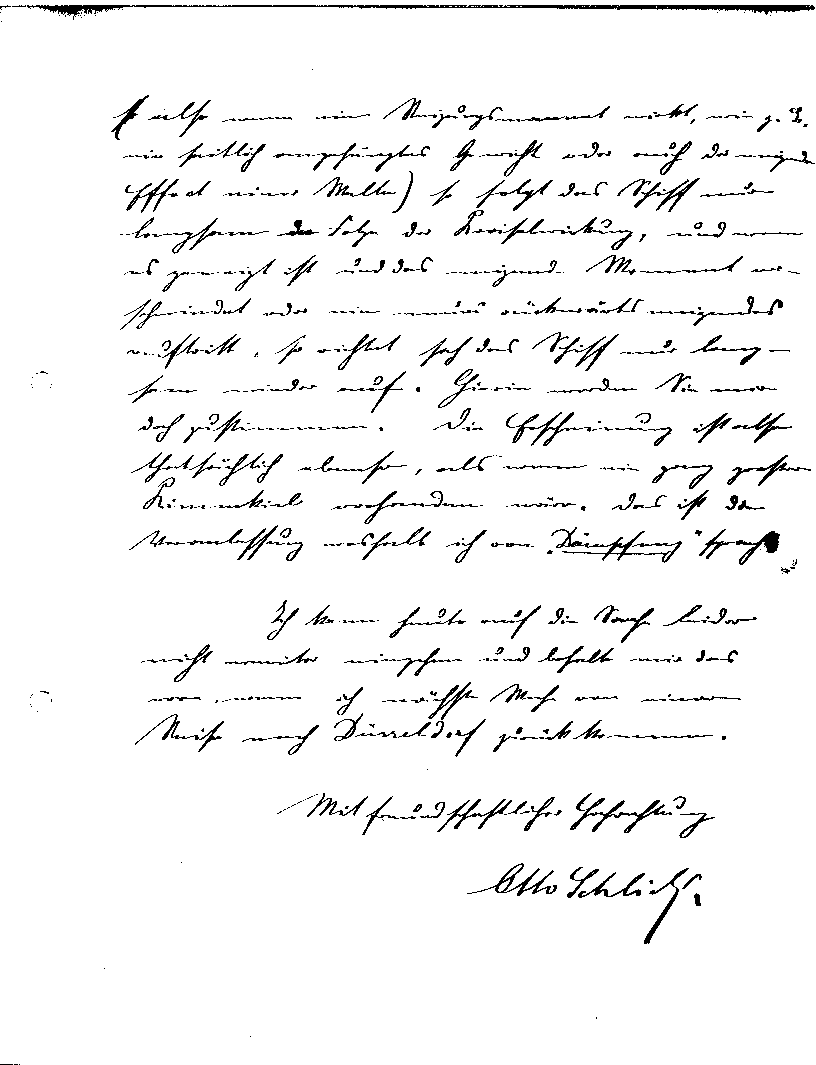 also wenn ein Neigungsmoment wirkt, wie z. B.
ein seitlich angehängtes Gewicht oder auch der neigende
Effect einer Welle) so folgt das Schiff nur
langsam der Folge der Kreiselwirkung, und wenn
es geneigt ist und das neigende Moment ver-
schwindet oder ein neues rückwärts neigendes
auftritt, so richtet sich das Schiff nur lang-
sam wieder auf. Hierin werden Sie mir
doch zustimmen. Die Erscheinung ist also
thatsächlich ebenso, als wenn ein ganz grosser
Kimmkiel vorhanden wäre. Das ist die
Veranlassung weshalb ich von „Dämpfung“ sprach
Ich kann heute auf die Sache leider
nicht weiter eingehen und behalte mir das
vor, wenn ich nächste Woche von einer
Reise nach Düsseldorf zurückkomme.
Mit freundschaftlicher Hochachtung
Otto Schlick.